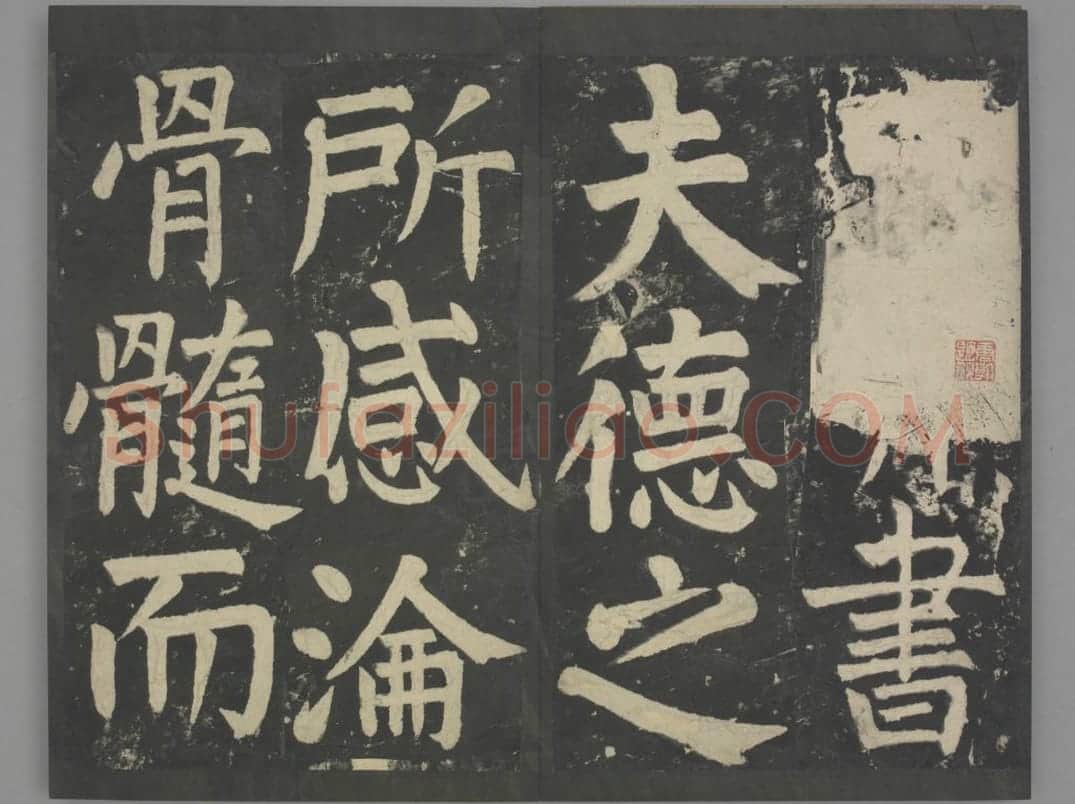 書
夫德之
所感淪
骨髓而
Shufaziliao.COM